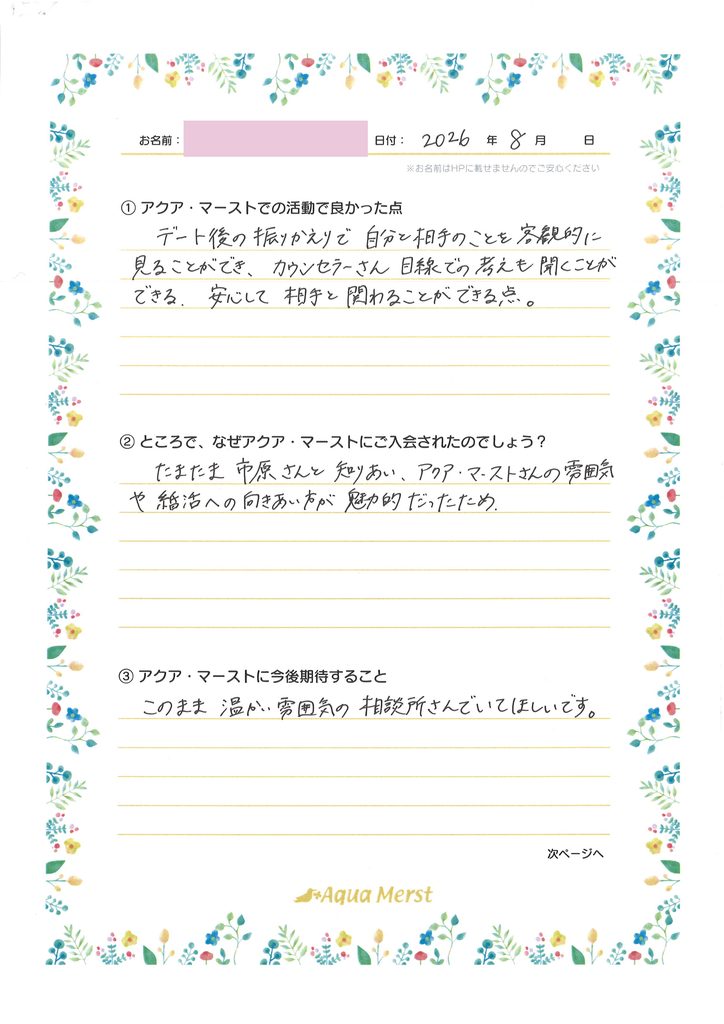 お名前： 日付： 2026 年 8 月 日
※お名前はHPに載せませんのでご安心ください
① アクア・マーストでの活動で良かった点
デート後の振りかえりで 自分と相手のことを客観的に
見ることができ、カウンセラーさん目線での考えも聞くことが
できる. 安心して 相手と関わることができる点。
② ところで、なぜアクア・マーストにご入会されたのでしょう？
たまたま 市原さんと知りあい、アクア・マーストさんの雰囲気
や婚活への向きあい方が魅力的だったため.
③ アクア・マーストに今後期待すること
このまま 温かい雰囲気の 相談所さんでいてほしいです。
次ページへ
Aqua Merst